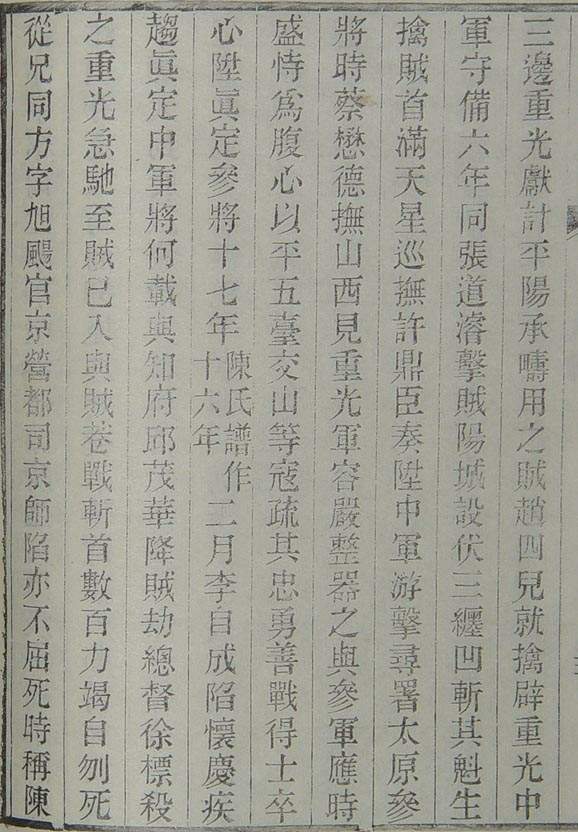 三邊重光獻計平陽承疇用之賊趙四兒就擒辟重光中
軍守備六年同張道濬擊賊陽城設伏三纏凹斬其魁生
擒賊首滿天星巡撫許鼎臣奏陞中軍游擊尋署太原參
將時蔡懋德撫山西見重光軍容嚴整器之與參軍應時
盛恃爲腹心以平五臺交山等寇疏其忠勇善戰得士卒
心陞眞定參將十七年陳氏譜作十六年二月李自成陷懷慶疾
趨眞定中軍將何載與知府邱茂華降賊劫總督徐標殺
之重光急馳至賊已入與賊巷戰斬首數百力竭自刎死
從兄同方字旭颺官京營都司京師陷亦不屈死時稱陳